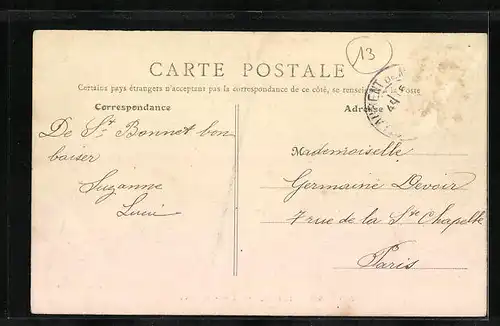 13
CARTE POSTALE
Certains pays étrangers n'acceptant pas la correspondance de ce côté, se renseigner à la Poste
Correspondance
Adresse
De St Bonnet bon
baiser
Suzanne
Mademoiselle
Germaine Devoir
7 rue de la Ste Chapelle
Paris